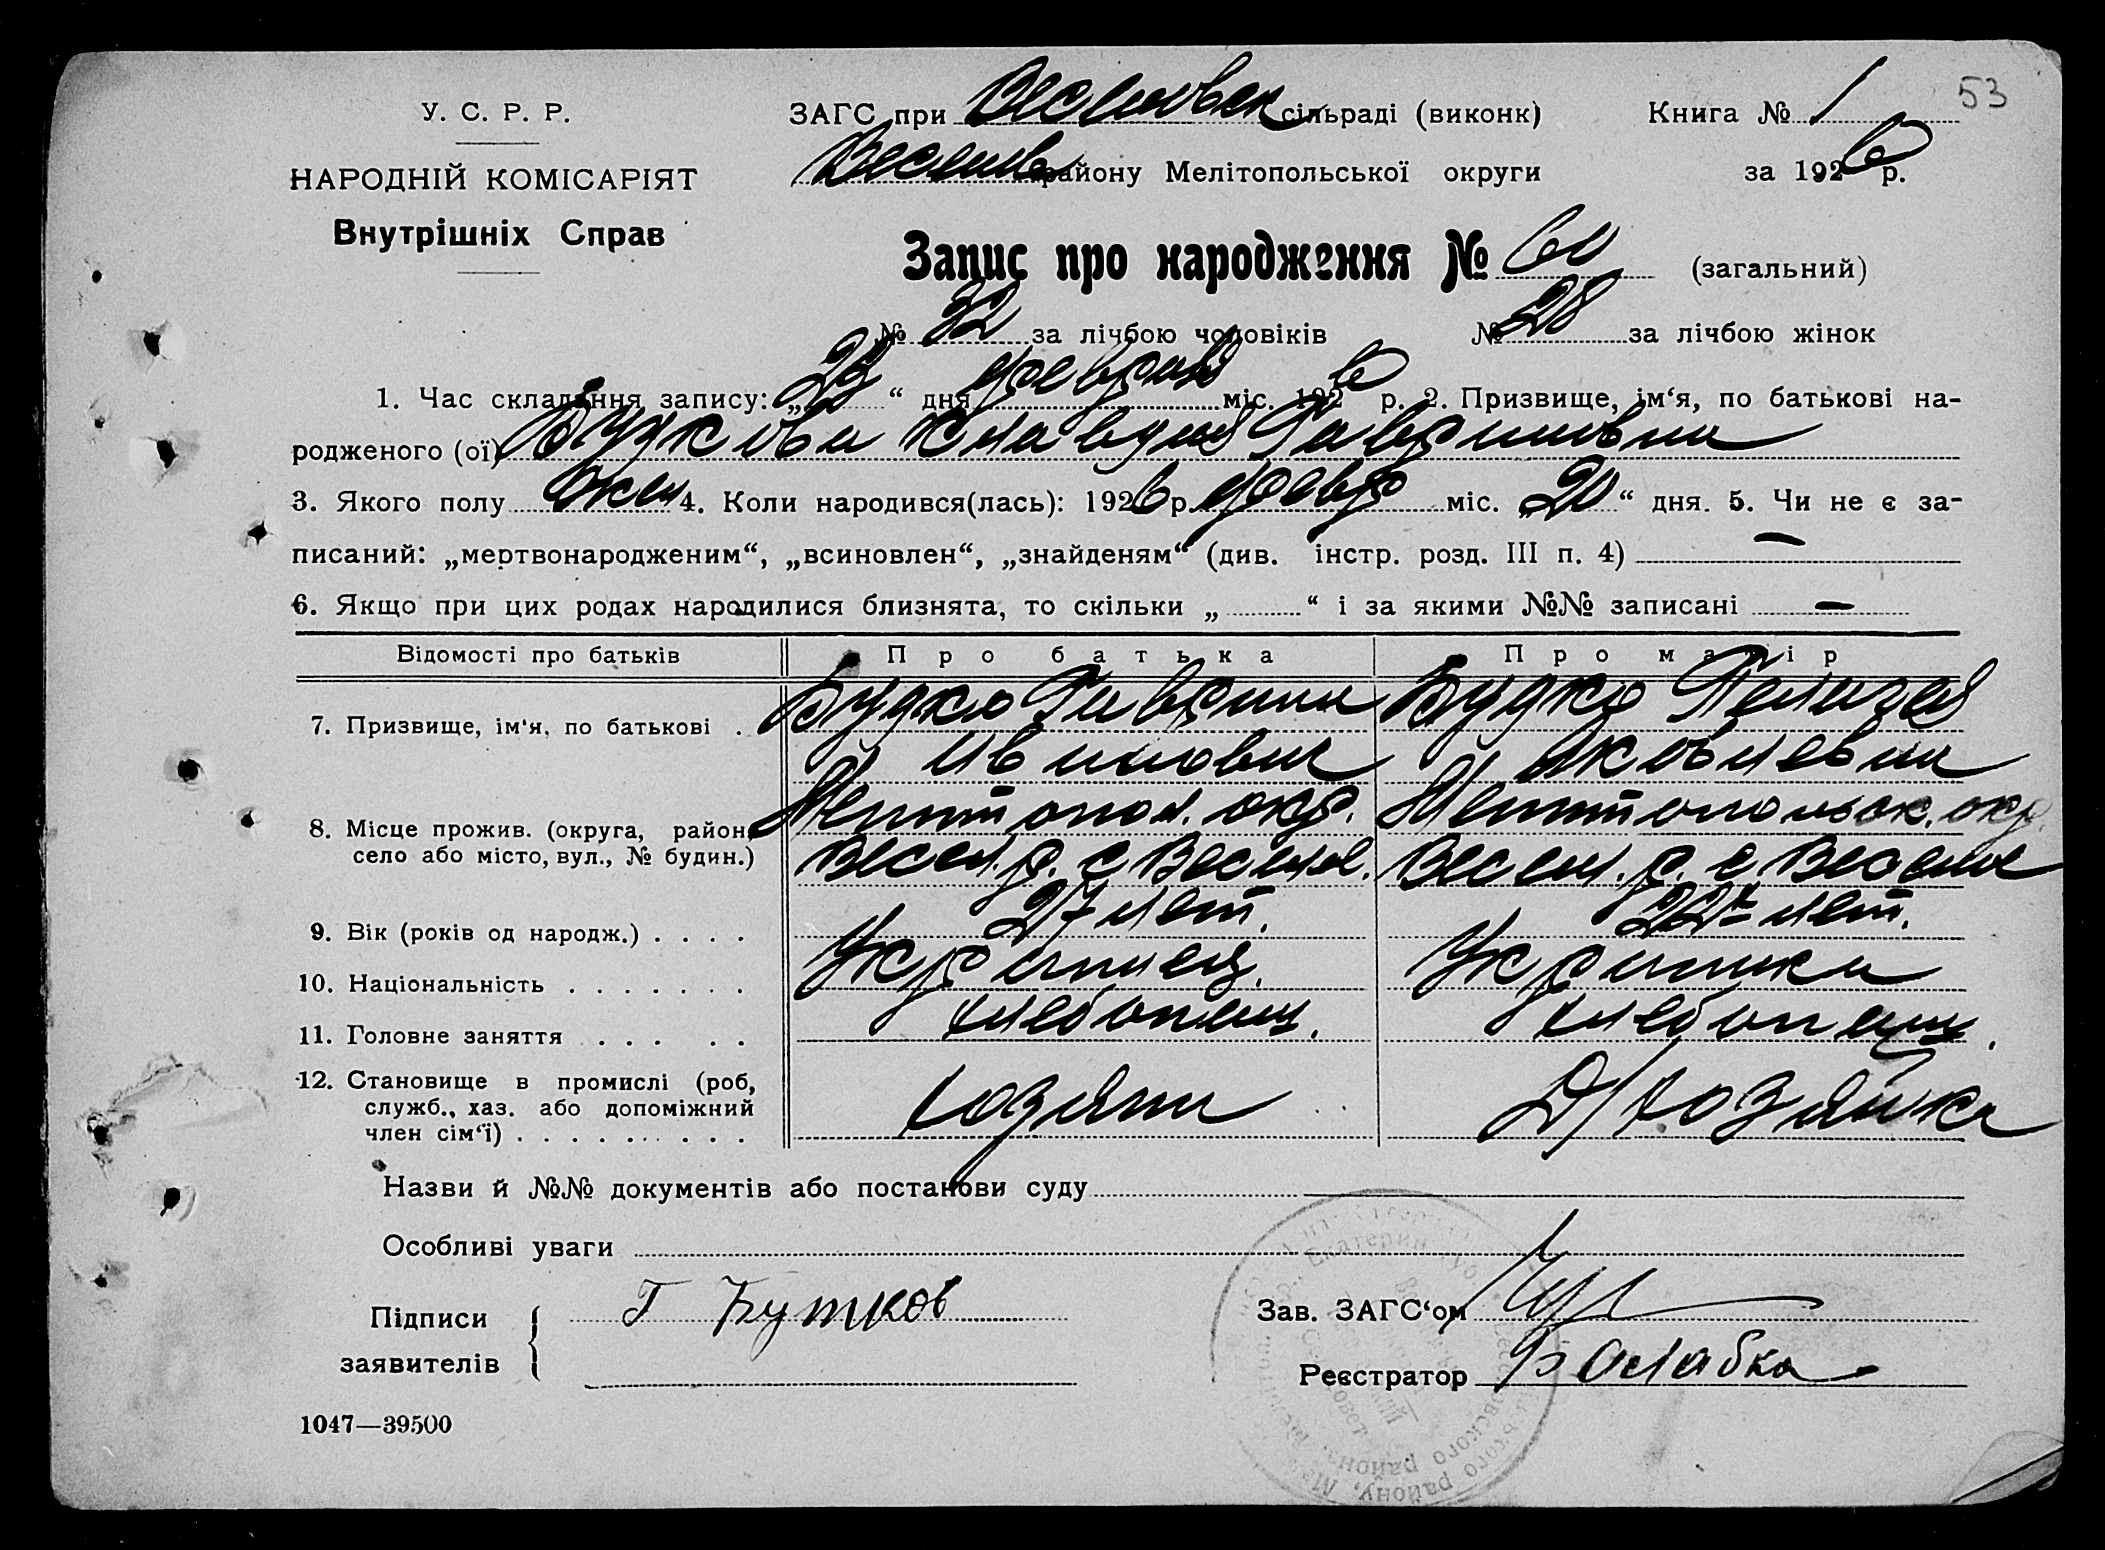 53
У. С. Р. Р.
НАРОДНІЙ КОМІСАРІЯТ
Внутрішніх Справ
ЗАГС при Веселовск сільраді (виконк)
Веселов району Мелітопольської округи
Книга № 1
за 1926 р.
Запис про народження № 60 (загальний)
№ 32 за лічбою чоловіків № 28 за лічбою жінок
1. Час складання запису: „23“ дня февраля міс. 1926 р. 2. Призвище, ім‘я, по батькові на-
родженого (ої) Клавдия Гавриловна
3. Якого полу жен 4. Коли народився(лась): 1926 р. февр міс. „20“ дня. 5. Чи не є за-
писаний: „мертвонародженим“, „всиновлен“, „знайденям“ (див. інстр. розд. III п. 4) —
6. Якщо при цих родах народилися близнята, то скільки „ “ і за якими №№ записані —
Відомості про батьків Про батька Про матір
7. Призвище, ім‘я, по батькові . Будко Гаврила Будко Пелагея
Иванович Яковлевна
8. Місце прожив. (округа, район, Мелитопол. окр. Мелитопольск. окр.
село або місто, вул., № будин.) Весел. р. с Веселое. Весел. р. с Веселое
9. Вік (років од народж.) . . . . 27 лет. 22 лет.
10. Національність . . . . . . . Украинец. Украинка
11. Головне заняття . . . . . хлебопаш. хлебопаш.
12. Становище в промислі (роб,
служб., хаз. або допоміжний хозяин Д/хозяйка
член сім‘ї) . . . . . . . . .
Назви й №№ документів або постанови суду
Особливі уваги
Підписи
заявителів
Г Бутков
Зав. ЗАГС‘ом
Реєстратор Балабка
1047—39500